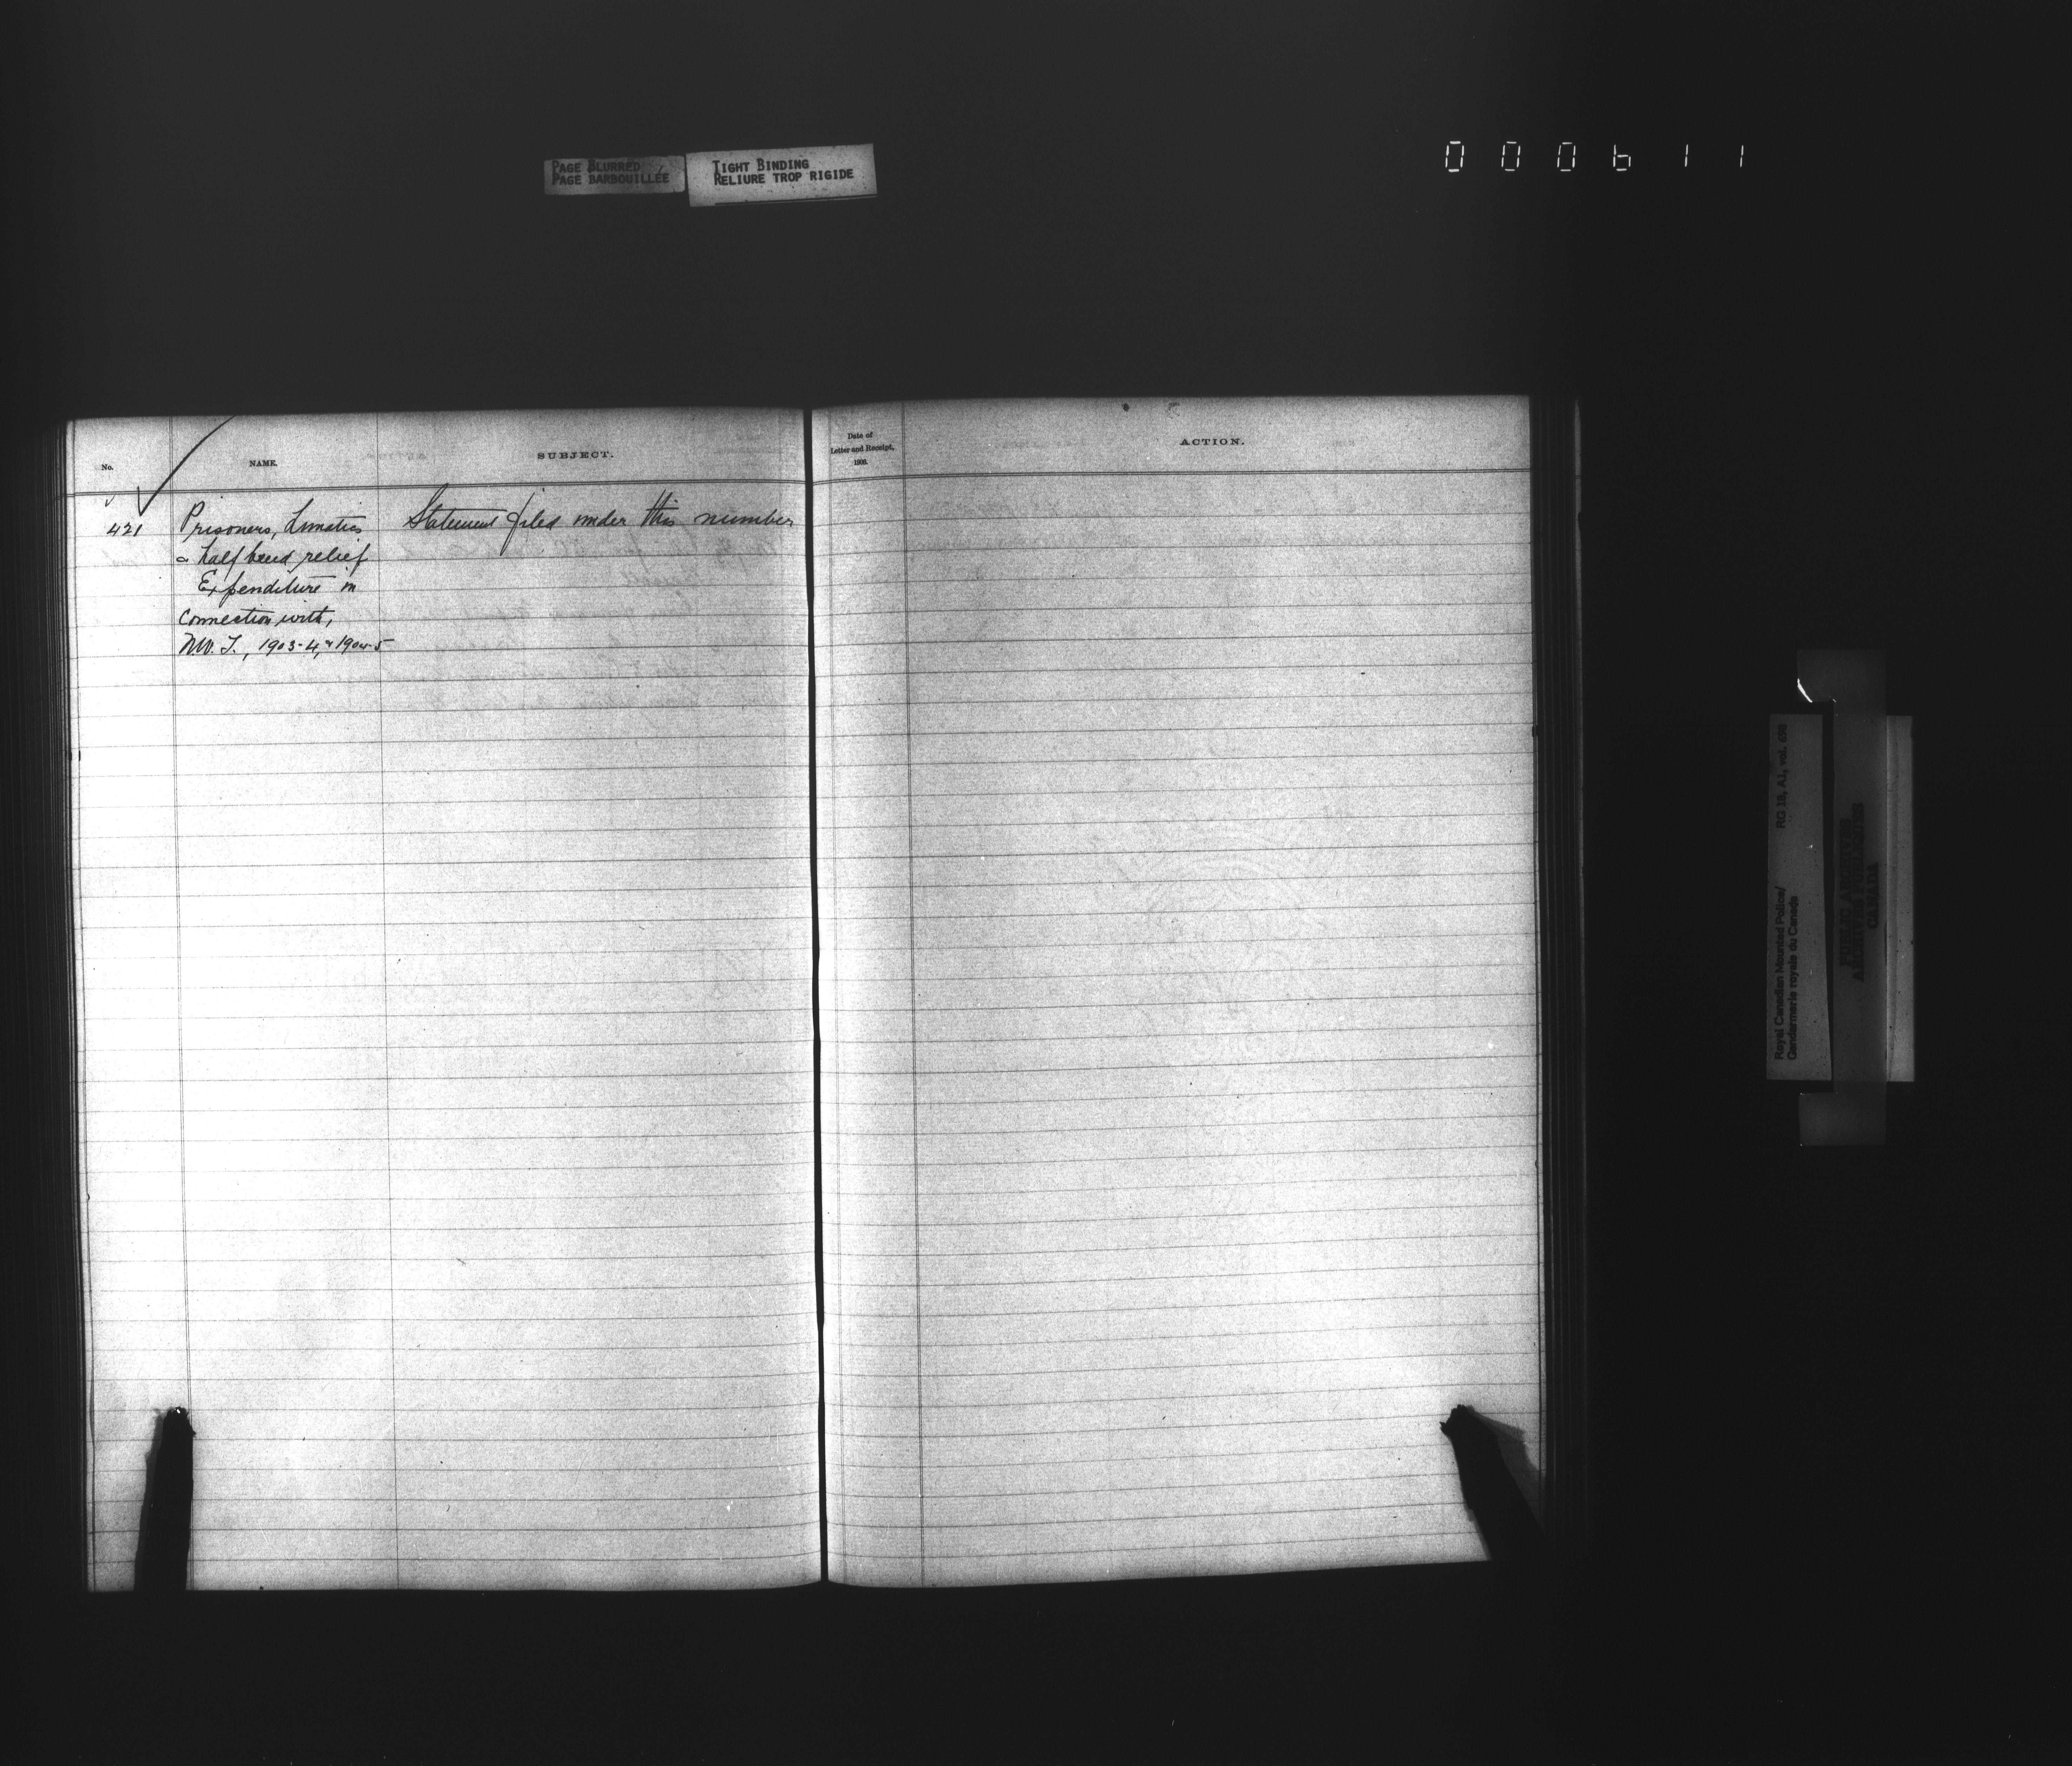 PAGE BLURRED
PAGE BARBOUILLÉE
TIGHT BINDING
RELIURE TROP RIGIDE
000611
No.
NAME.
SUBJECT.
Date of
Letter and Receipt,
ACTION.
421 Prisoners, Lunatics Statement filed under this number
& half breed relief
Expenditure in
connection with,
N.W.T., 1903-4, & 1904-5
Royal Canadian Mounted Police/
Gendarmerie royale du Canada
RG 18, A1, vol.
PUBLIC ARCHIVES
ARCHIVES PUBLIQUES
CANADA